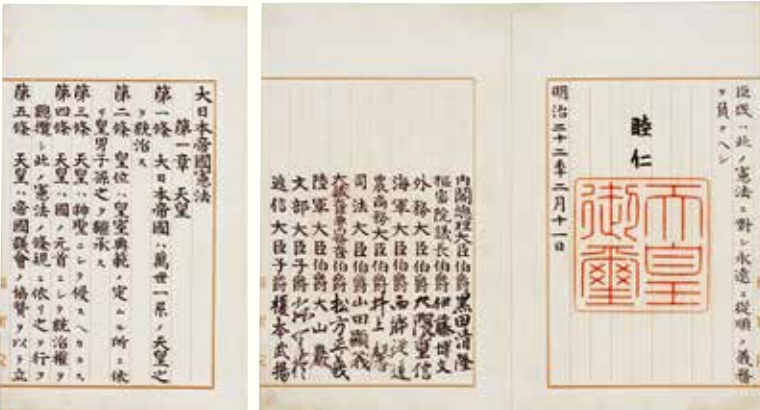 臣民ハ此ノ憲法ニ對シ永遠ニ從順ノ義務
ヲ負フヘシ
睦仁
天皇
御璽
明治二十二年二月十一日
内閣總理大臣伯爵黒田清隆
樞密院議長伯爵伊藤博文
外務大臣伯爵大隈重信
海軍大臣伯爵西郷從道
農商務大臣伯爵井上馨
司法大臣伯爵山田顯義
大藏大臣兼内務大臣伯爵松方正義
陸軍大臣伯爵大山巖
文部大臣子爵森有禮
遞信大臣子爵榎本武揚
大日本帝國憲法
第一章 天皇
第一條 大日本帝國ハ萬世一系ノ天皇之
ヲ統治ス
第二條 皇位ハ皇室典範ノ定ムル所ニ依
リ皇男子孫之ヲ繼承ス
第三條 天皇ハ神聖ニシテ侵スヘカラス
第四條 天皇ハ國ノ元首ニシテ統治權ヲ
總攬シ此ノ憲法ノ條規ニ依リ之ヲ行フ
第五條 天皇ハ帝國議會ノ協贊ヲ以テ立